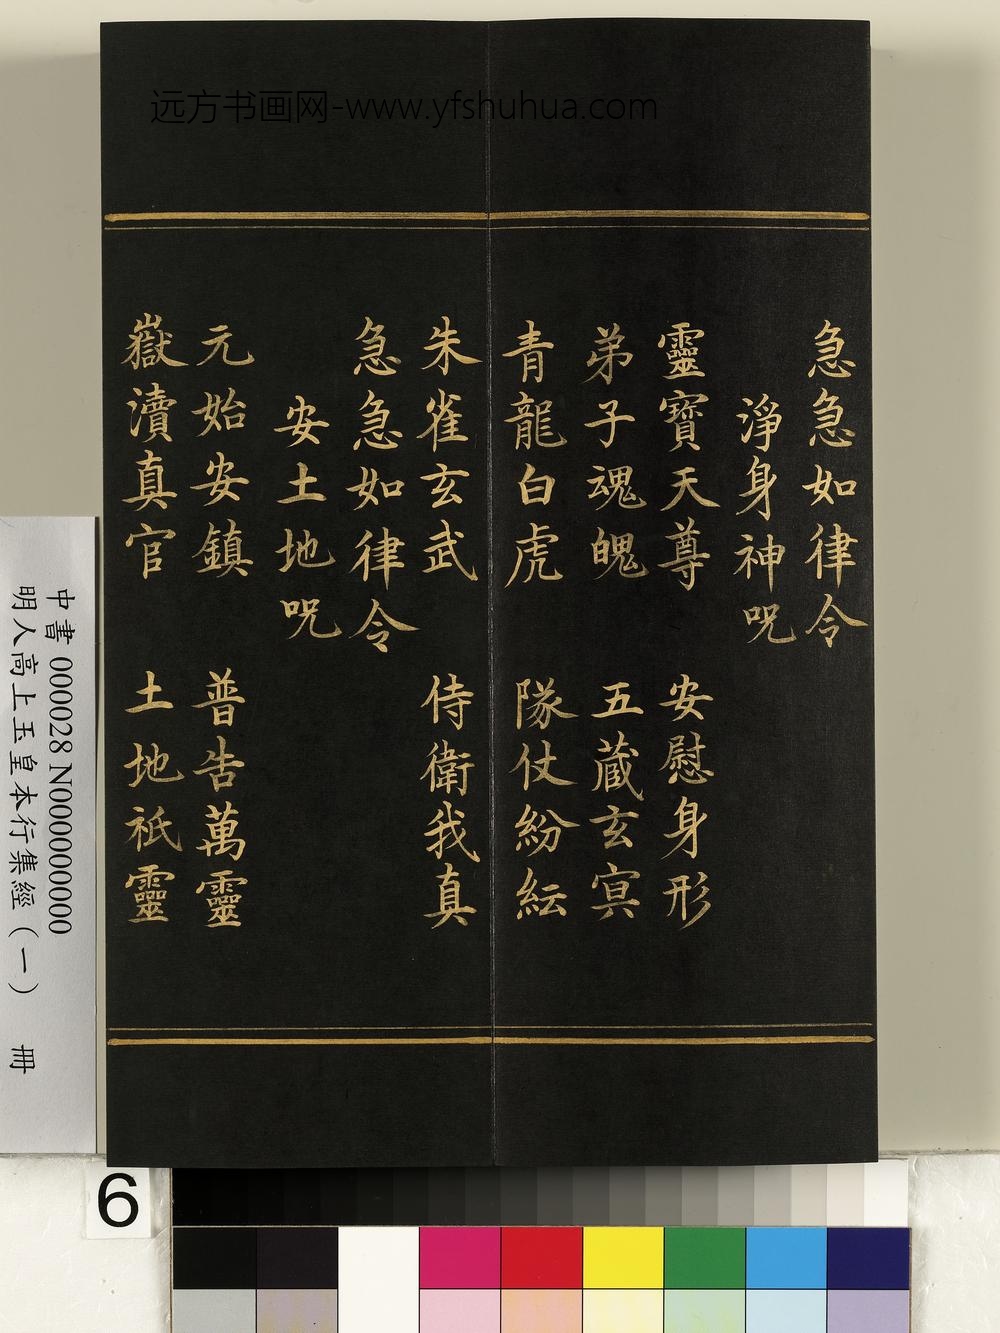 远方书画网-www.yfshuhua.com
急急如律令
淨身神咒
靈寶天尊 安慰身形
弟子魂魄 五蔵玄㝠
青龍白虎 隊仗紛紜
朱雀玄武 侍衛我真
急急如律令
安土地咒
元始安鎮 普告萬靈
嶽瀆真官 土地祇靈
中書 000028 N000000000
明人高上玉皇本行集經（一） 冊
6